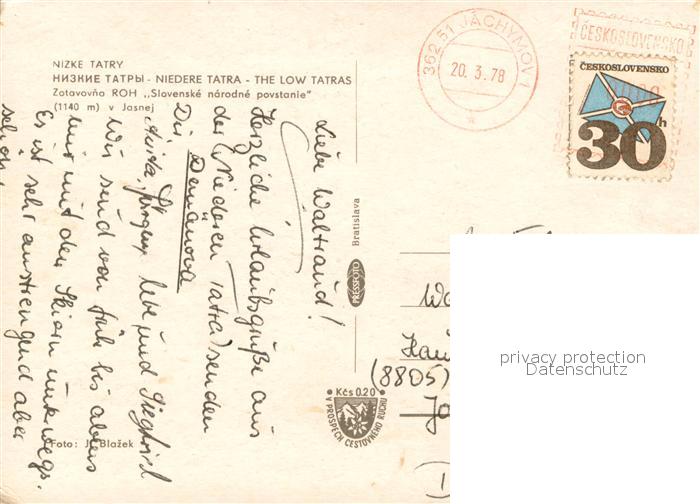 NÍZKE TATRY
НИЗКИЕ ТАТРЫ - NIEDERE TATRA - THE LOW TATRAS
Zotavovňa ROH „Slovenské národné povstanie"
(1140 m) v Jasnej
362 51 JÁCHYMOV 1
20. 3. 78
ČESKOSLOVENSKO
ČESKOSLOVENSKO
30h
Liebe Waltraud!
Herzliche Urlaubsgrüße aus
der Niederen Tatra senden
Dir
Demänová
Jürgen, Ute und Siegfried
Wir sind von früh bis abens
nur mit den Skiern unterwegs.
Es ist sehr anstrengend aber
schön!
Foto: J. Blažek
PRESSFOTO Bratislava
Kčs 0.20
V PROSPECH CESTOVNÉHO RUCHU
(8805)
privacy protection
Datenschutz